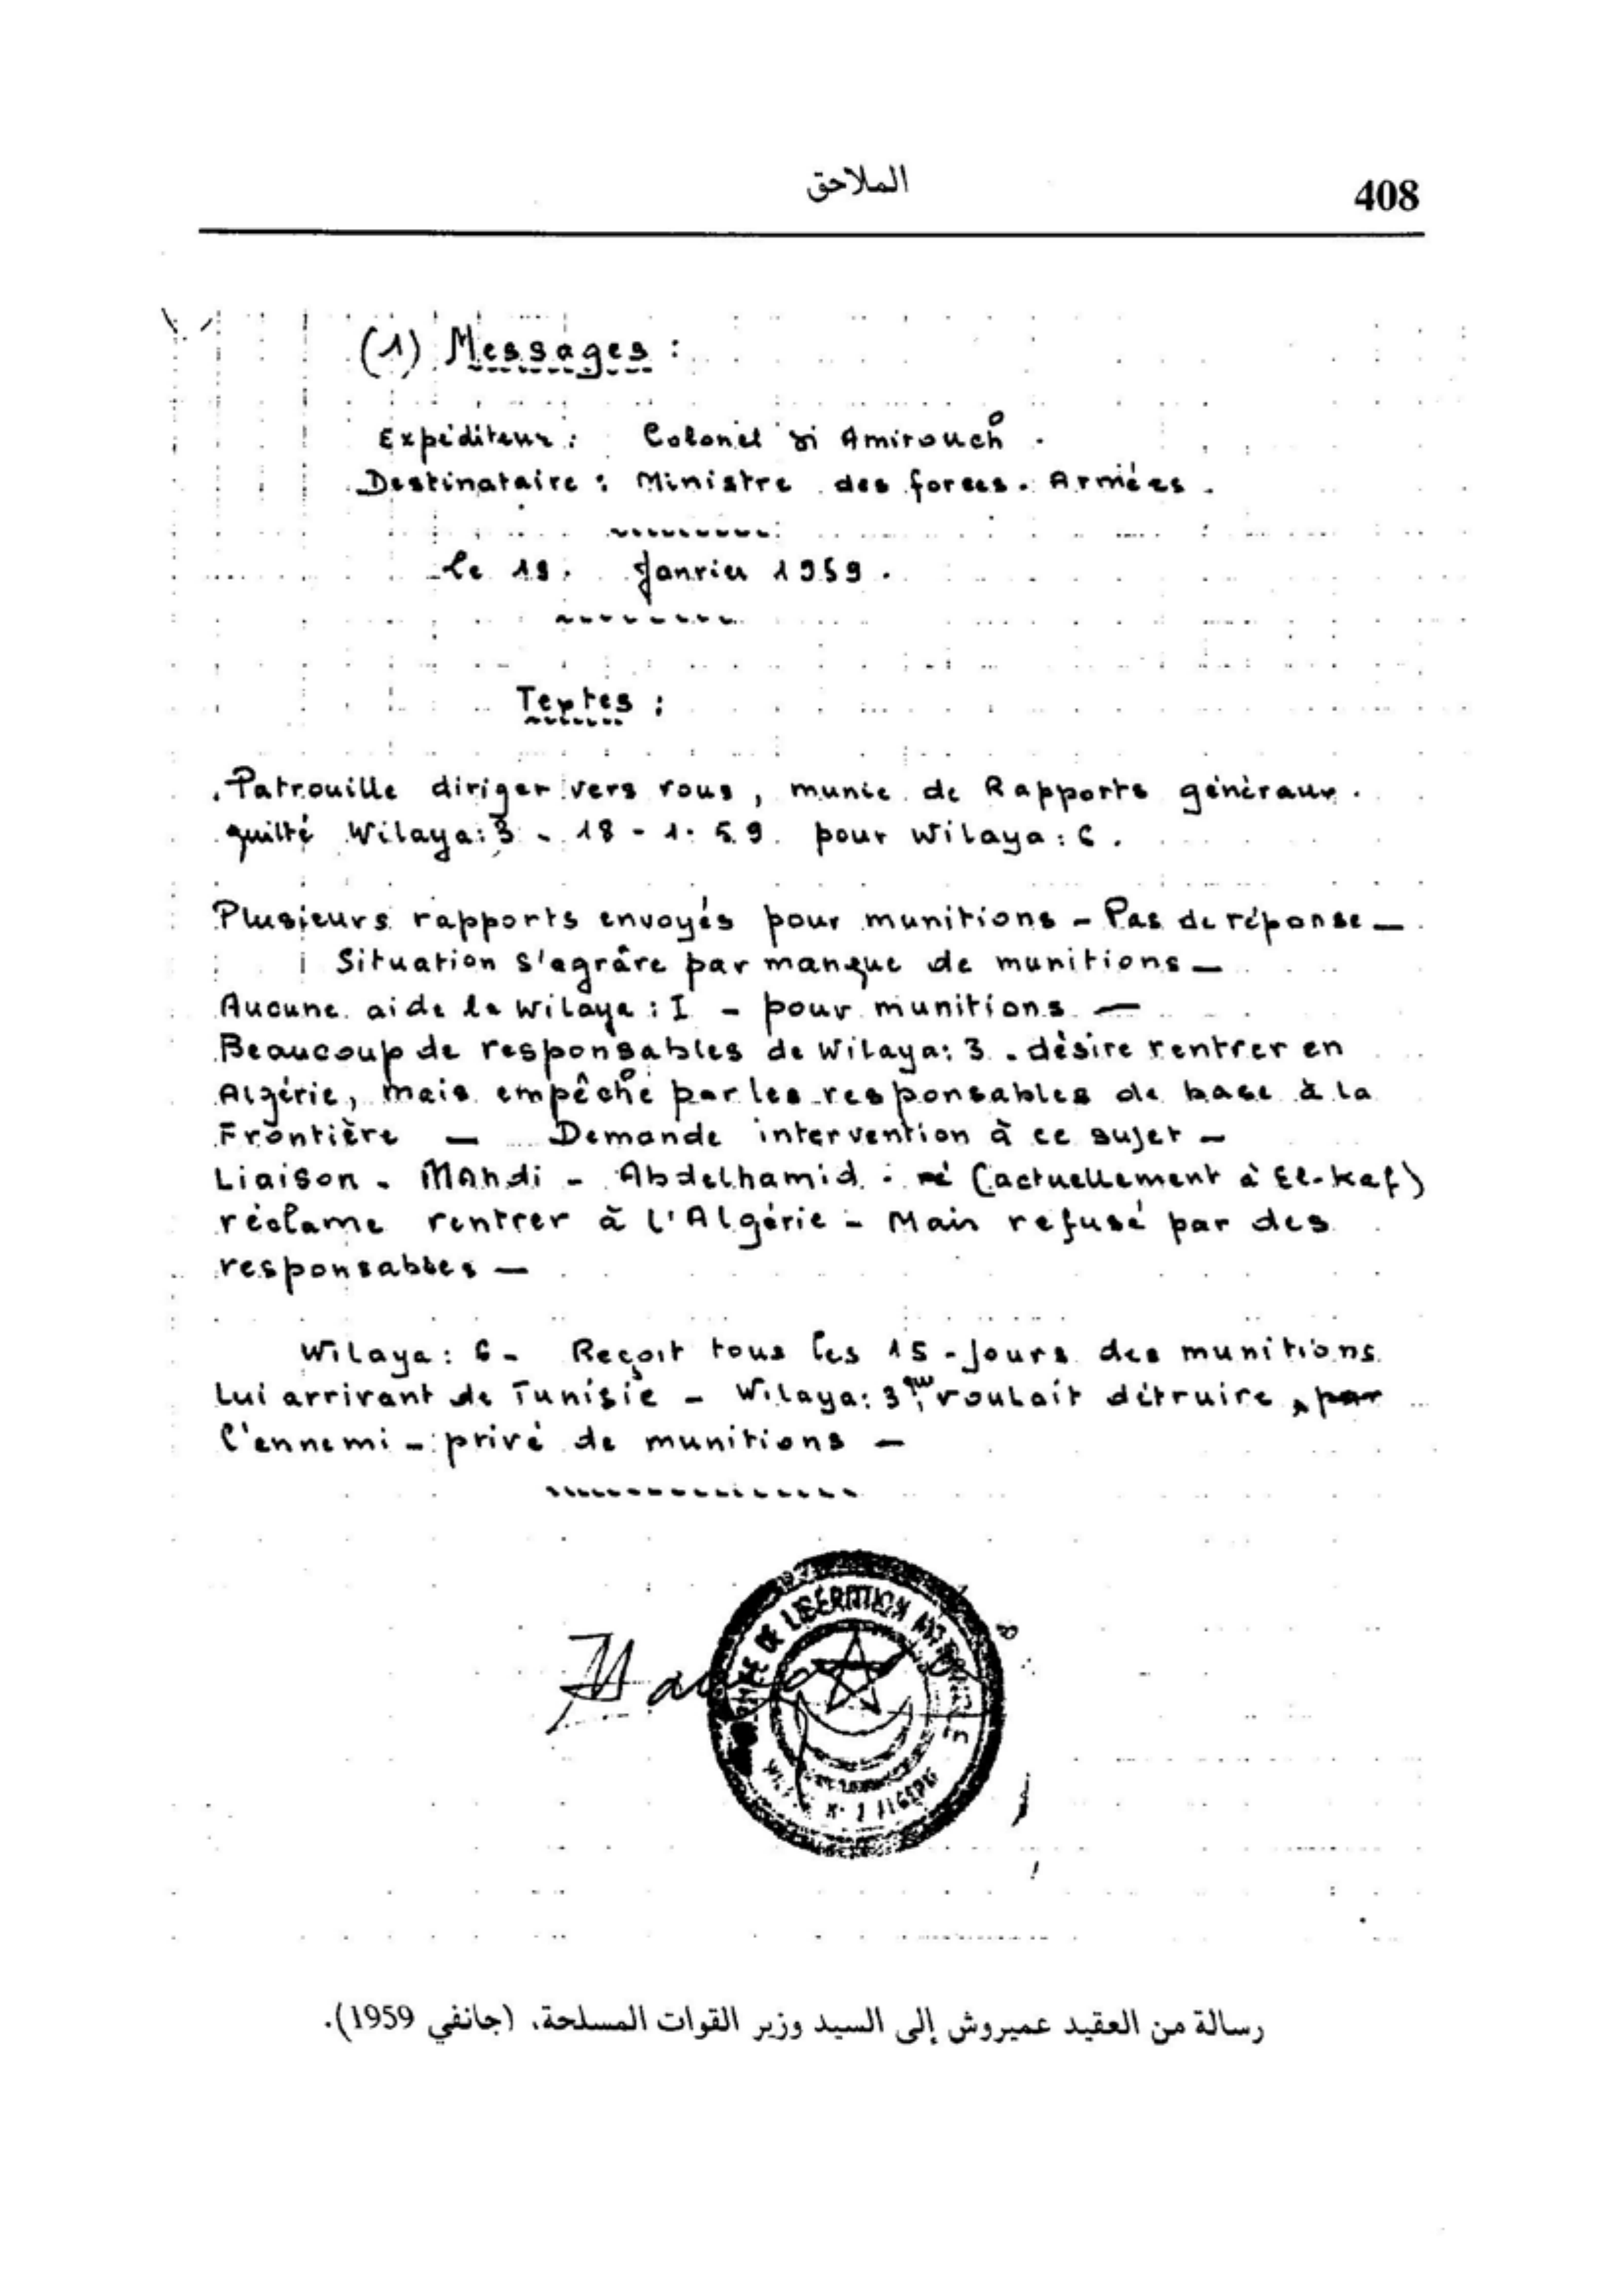 الملاحق
408
(1) Messages :
Expéditeur : Colonel Si Amirouch .
Destinataire : Ministre des forces . Armées .
Le 19 . Janvier 1959 .
Textes :
. Patrouille diriger vers vous , munie de Rapports généraux .
quitté Wilaya : 3 - 18 - 1 - 59 . pour Wilaya : 6 .
Plusieurs rapports envoyés pour munitions - Pas de réponse -
Situation s'agrâve par manque de munitions -
Aucune aide la Wilaya : I - pour munitions -
Beaucoup de responsables de Wilaya : 3 . désire rentrer en
Algérie , mais empêché par les responsables de base à la
Frontière - Demande intervention à ce sujet -
Liaison - MAhdi - Abdelhamid . (actuellement à El-Kef)
réclame rentrer à l'Algérie - Mais refusé par des
responsables -
Wilaya : 6 - Reçoit tous les 15 - Jours des munitions
Lui arrivant de Tunisie - Wilaya : 3 qu' voulait détruire , par
l'ennemi - privé de munitions -
DE LIBÉRATION
رسالة من العقيد عميروش إلى السيد وزير القوات المسلحة، (جانفي 1959).